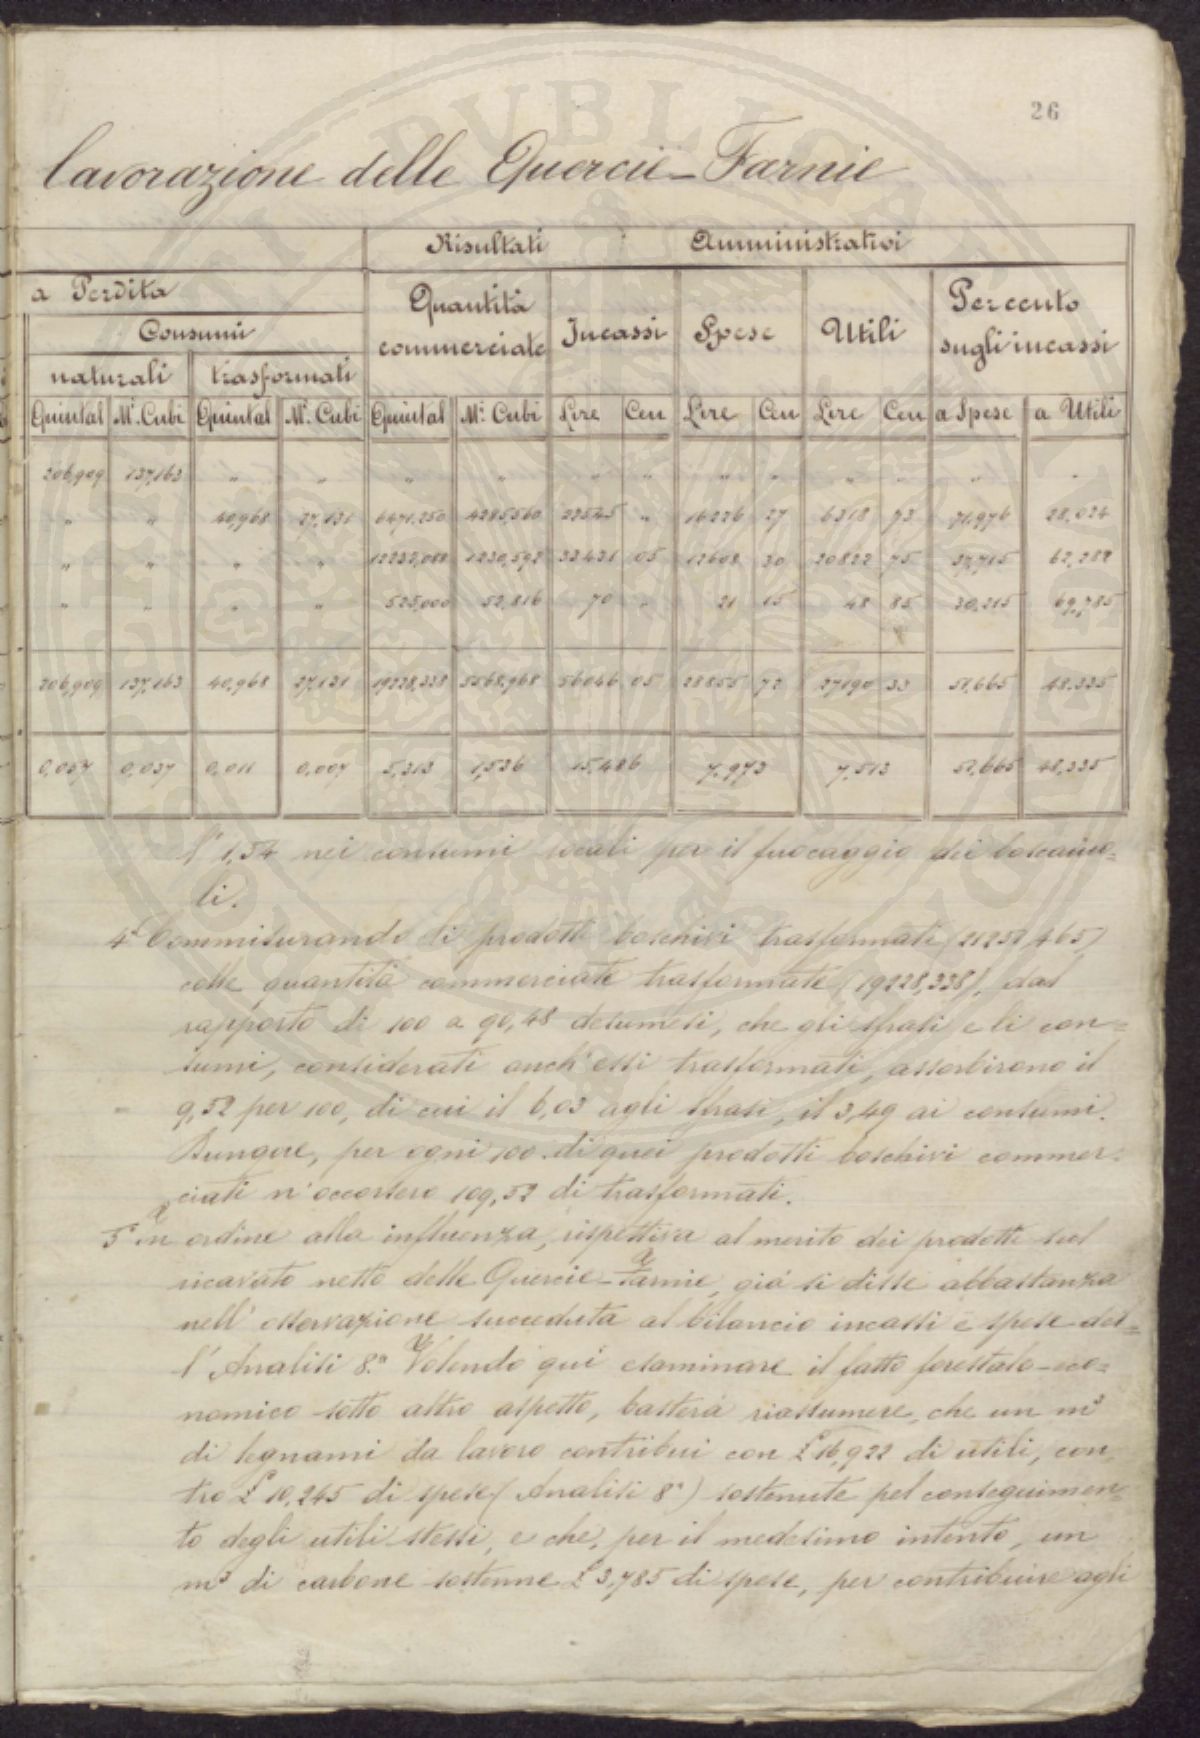 26
lavorazione delle Quercie-Farnie
Risultati Amministrativi
a Perdita
Consumi
naturali trasformati
Quantità commerciate
Incassi
Spese
Utili
Percento sugli incassi
Quintal Mi. Cubi Quintal Mi. Cubi Quintal Mi. Cubi Lire Cen Lire Cen Lire Cen a Spese a Utili
206,909 137,163 " " " " " " " " " " " "
" " 40,968 27,131 6471,250 4285,560 22545 " 16226 27 6318 73 71,976 28,024
" " " " 12232,088 1230,592 33431 05 12608 30 20822 75 37,715 62,289
" " " " 525,000 52,816 70 " 21 15 48 85 30,215 69,785
206,909 137,163 40,968 27,131 19228,338 5568,968 56046 05 28855 72 27190 33 51,665 48,335
0,057 0,037 0,011 0,007 5,313 1,536 15,486 7,973 7,513 51,665 48,335
l' 1,54 nei consumi locali per il fuocaggio dei boscaiuo-
li.
4° Commisurando li prodotti boschivi trasformati (21251,465)
colle quantità commerciate trasformate (19228,338), dal
rapporto di 100 a 90,48 desumesi, che gli sfrasi e li con-
sumi, considerati anch'essi trasformati, assorbirono il
9,52 per 100, di cui il 6,03 agli sfrasi, il 3,49 ai consumi.
Dunque, per ogni 100 di quei prodotti boschivi commer-
ciati n'occorsero 109,52 di trasformati.
5° In ordine alla influenza, rispettiva al merito dei prodotti sul
ricavato netto delle Quercie-Farnie, già si disse abbastanza
nell'osservazione succeduta al bilancio incassi e spese del-
l'Analisi 8.a Volendo qui esaminare il fatto forestale-eco-
nomico sotto altro aspetto, basterà riassumere, che un m³
di legnami da lavoro contribuì con £ 16,922 di utili, con-
tro £ 10,245 di spese (Analisi 8a) sostenute pel conseguimen-
to degli utili stessi, e che, per il medesimo intento, un
m³ di carbone sostenne £ 3,785 di spese, per contribuire agli